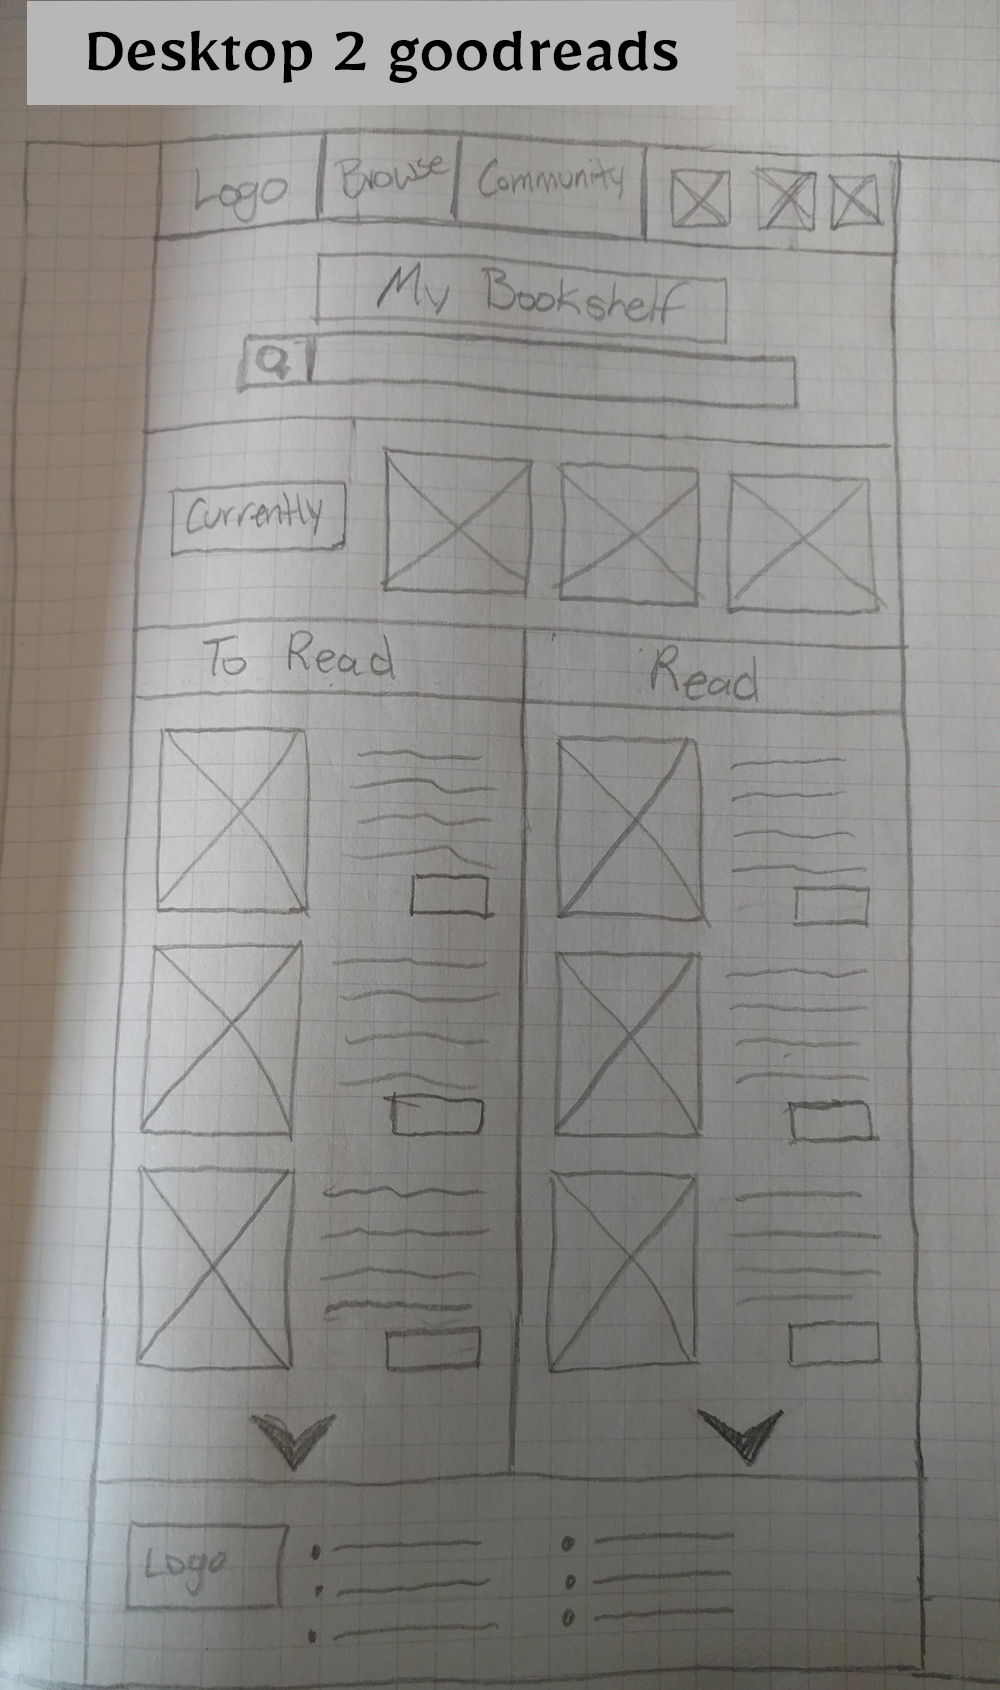 Desktop 2 goodreads
Logo Browse Community
My Bookshelf
Currently
To Read Read
Logo